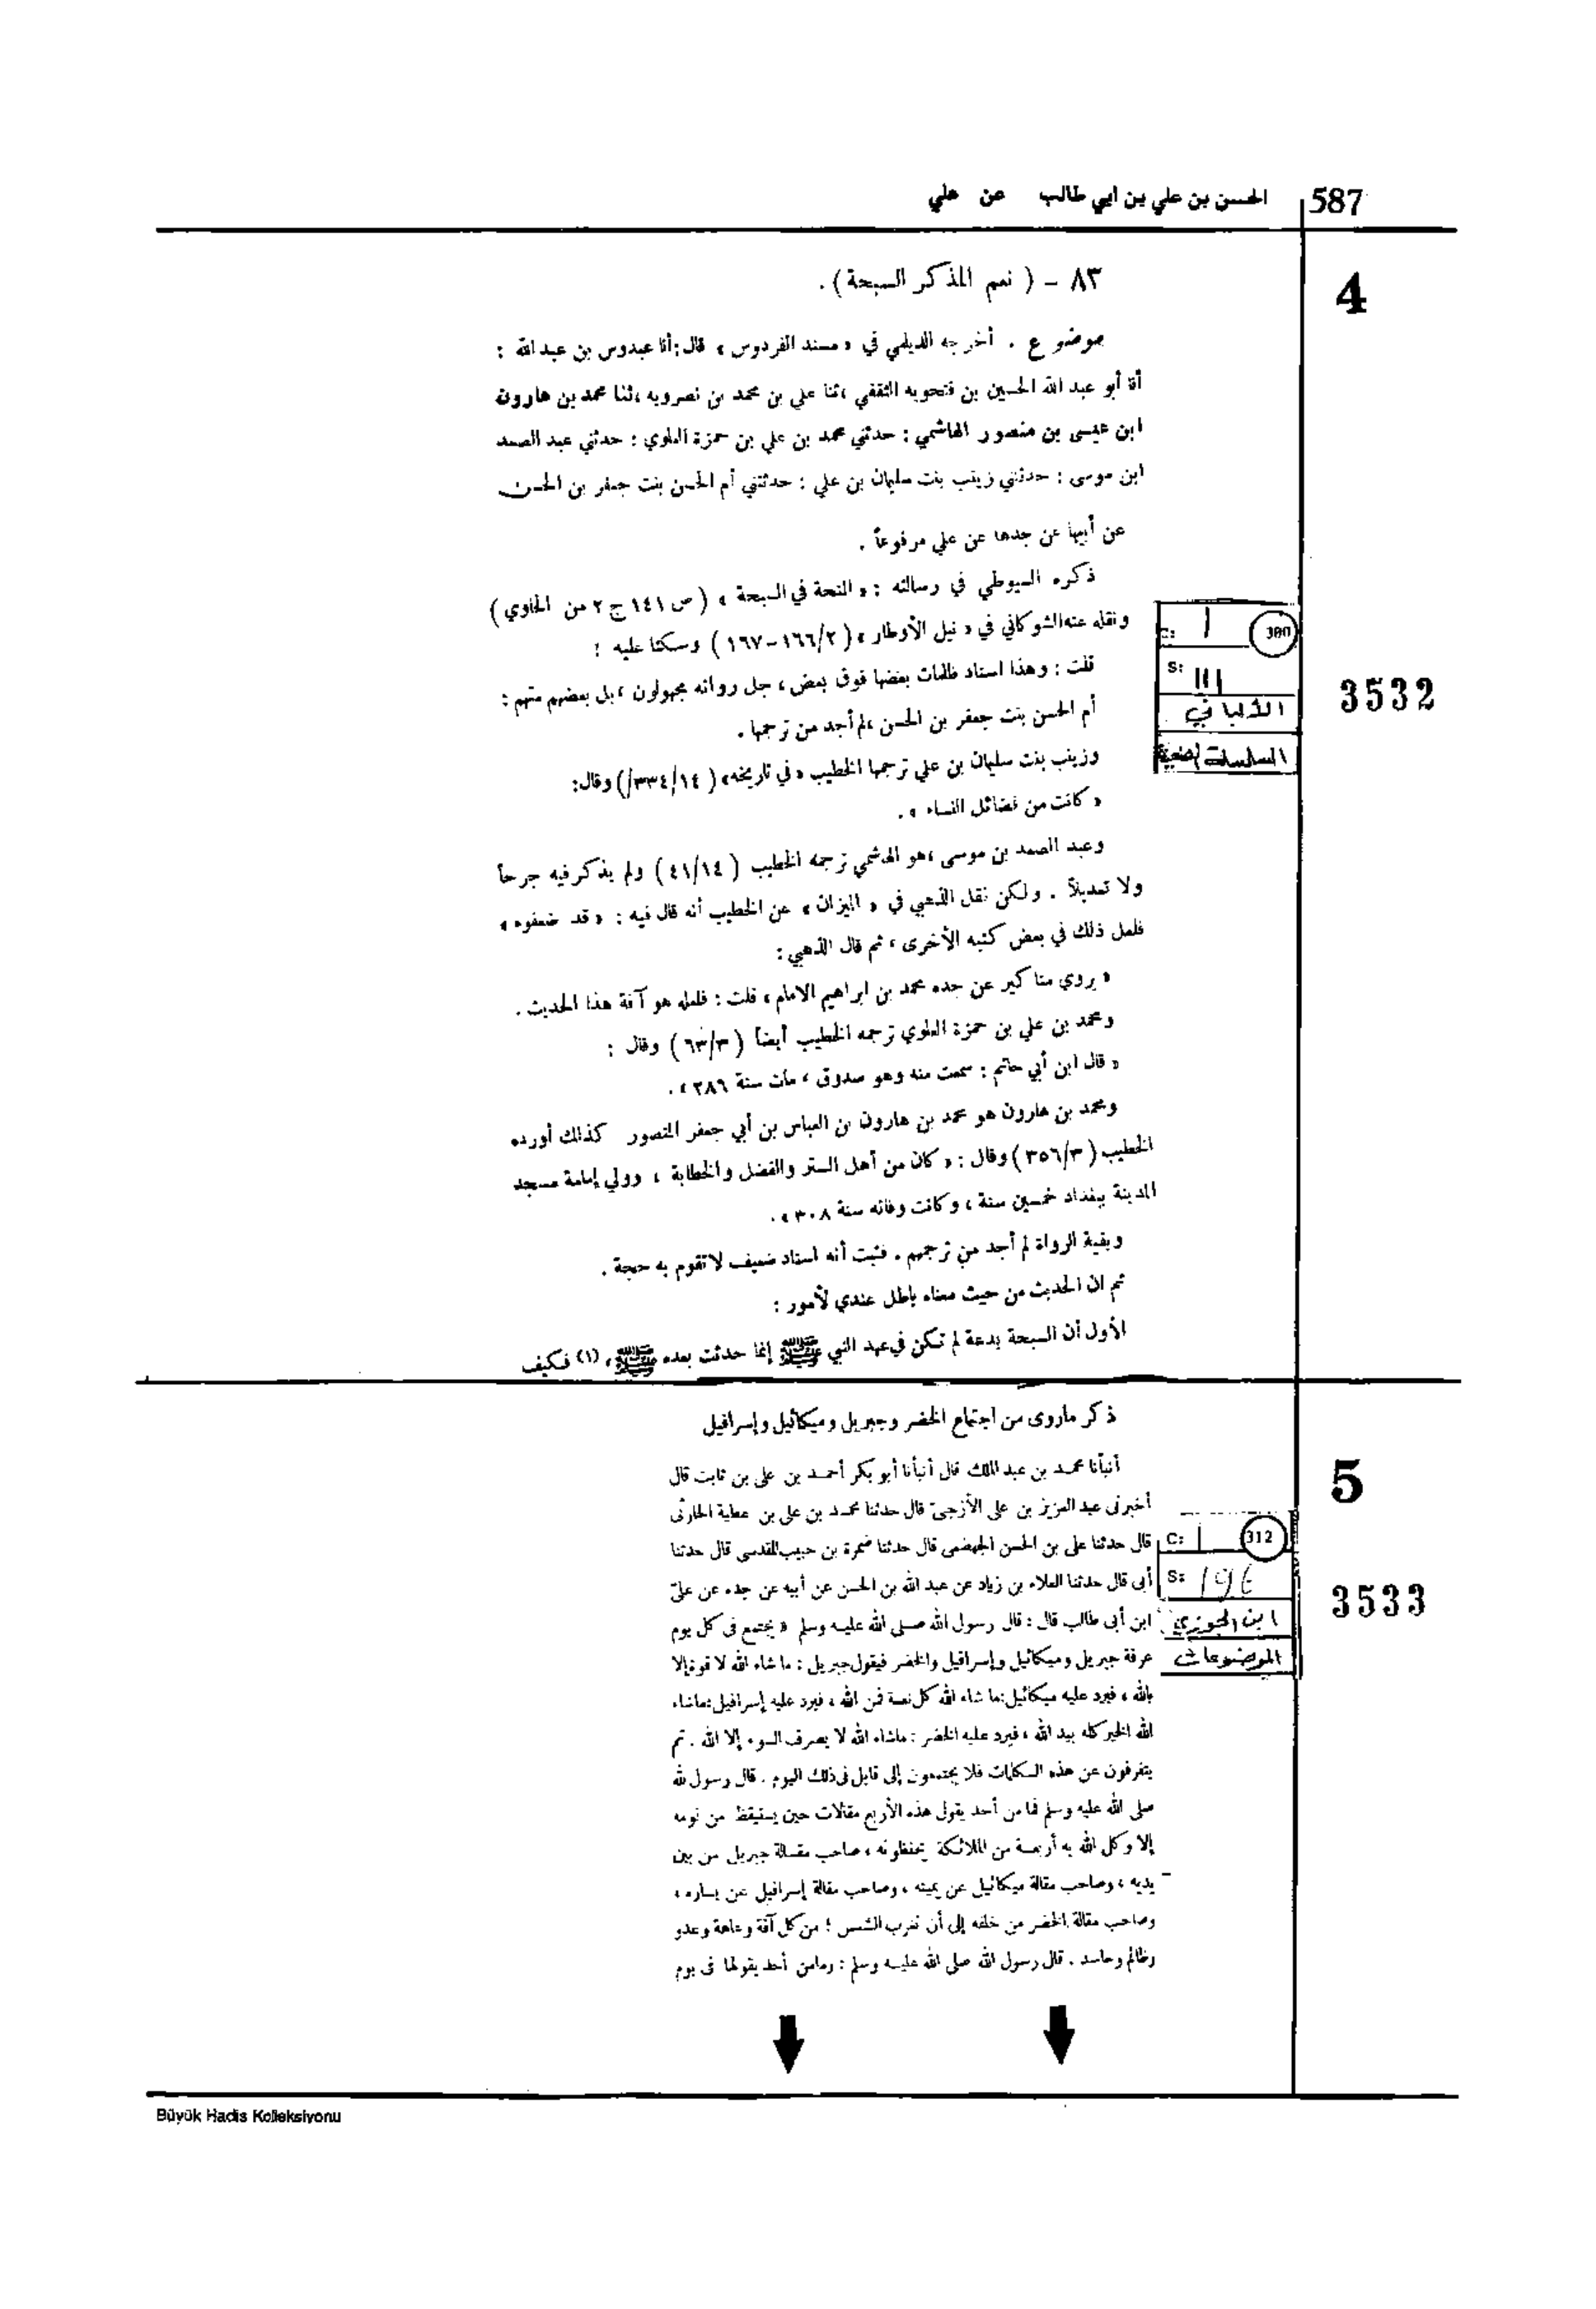 587
الحسن بن علي بن ابي طالب عن علي
4
٨٣ – ( نعم المذكر السبحة ) .
موضوع . أخرجه الديلمي في « مسند الفردوس » قال : أنا عبدوس بن عبد الله :
أنا أبو عبد الله الحسين بن فتحويه الثقفي ، ثنا علي بن محمد بن نصرويه ، ثنا محمد بن هارون
ابن عيسى بن منصور الهاشمي : حدثني محمد بن علي بن حمزة العلوي : حدثني عبد الصمد
ابن موسى : حدثتني زينب بنت سليمان بن علي : حدثتني أم الحسن بنت جعفر بن الحسن
عن أبيها عن جدها عن علي مرفوعاً .
ذكره السيوطي في رسالته : « المنحة في السبحة » ( ص ١٤١ ج ٢ من الحاوي )
ونقله عنه الشوكاني في « نيل الأوطار » ( ٢/ ١٦٦ – ١٦٧ ) وسكتا عليه !
قلت : وهذا اسناد ظلمات بعضها فوق بعض ، جل رواته مجهولون ، بل بعضهم متهم :
أم الحسن بنت جعفر بن الحسن ، لم أجد من ترجمها .
وزينب بنت سليمان بن علي ترجمها الخطيب « في تاريخه » ( ١٤/ ٣٣٤/ ) وقال :
« كانت من فضائل النساء » .
وعبد الصمد بن موسى ، هو الهاشمي ترجمه الخطيب ( ١٤/ ٤١ ) ولم يذكر فيه جرحاً
ولا تعديلاً . ولكن نقل الذهبي في « الميزان » عن الخطيب أنه قال فيه : « قد ضعفوه »
فلعل ذلك في بعض كتبه الأخرى ، ثم قال الذهبي :
« يروي مناكير عن جده محمد بن ابراهيم الامام » قلت : فلعله هو آفة هذا الحديث .
ومحمد بن علي بن حمزة العلوي ترجمه الخطيب أيضاً ( ٣/ ٦٣ ) وقال :
« قال ابن أبي حاتم : سمعت منه وهو صدوق ، مات سنة ٢٨٦ » .
ومحمد بن هارون هو محمد بن هارون بن العباس بن أبي جعفر المنصور كذلك أورده
الخطيب ( ٣/ ٣٥٦ ) وقال : « كان من أهل الستر والفضل والخطابة ، وولي إمامة مسجد
المدينة ببغداد خمسين سنة ، وكانت وفاته سنة ٣٠٨ » .
وبقية الرواة لم أجد من ترجمهم . فثبت أنه اسناد ضعيف لا تقوم به حجة .
ثم ان الحديث من حيث معناه باطل عندي لأمور :
الأول أن السبحة بدعة لم تكن في عهد النبي ﷺ إنما حدثت بعده ﷺ ، (١) فكيف
C: 1 300
S: 111
الألباني
السلسلة الضعيفة
3532
ذكر ما روى من اجتماع الخضر وجبريل وميكائيل وإسرافيل
5
أنبأنا محمد بن عبد الملك قال أنبأنا أبو بكر أحمد بن على بن ثابت قال
أخبرنى عبد العزيز بن على الأزجىّ قال حدثنا محمد بن على بن عطية الحارثى
قال حدثنا على بن الحسن الجهضمى قال حدثنا ضمرة بن حبيب المقدسى قال حدثنا
أبى قال حدثنا العلاء بن زياد عن عبد الله بن الحسن عن أبيه عن جده عن علىّ
ابن أبى طالب قال : قال رسول الله صلى الله عليه وسلم « يجتمع فى كل يوم
عرفة جبريل وميكائيل وإسرافيل والخضر فيقول جبريل : ما شاء الله لا قوة إلا
بالله ، فيرد عليه ميكائيل : ما شاء الله كل نعمة فمن الله ، فيرد عليه إسرافيل : ما شاء
الله الخير كله بيد الله ، فيرد عليه الخضر : ما شاء الله لا يصرف السوء إلا الله . ثم
يتفرقون عن هذه الكلمات فلا يجتمعون إلى قابل فى ذلك اليوم . قال رسول لله
صلى الله عليه وسلم فما من أحد يقول هذه الأربع مقالات حين يستيقظ من نومه
إلا وكل الله به أربعة من الملائكة يحفظونه ، صاحب مقالة جبريل من بين
يديه ، وصاحب مقالة ميكائيل عن يمينه ، وصاحب مقالة إسرافيل عن يساره ،
وصاحب مقالة الخضر من خلفه إلى أن تغرب الشمس ؛ من كل آفة وعاهة وعدو
وظالم وحاسد . قال رسول الله صلى الله عليه وسلم : وما من أحد يقولها فى يوم
C: 1 312
S: 196
ابن الجوزي
الموضوعات
3533
Büyük Hadis Kolleksiyonu